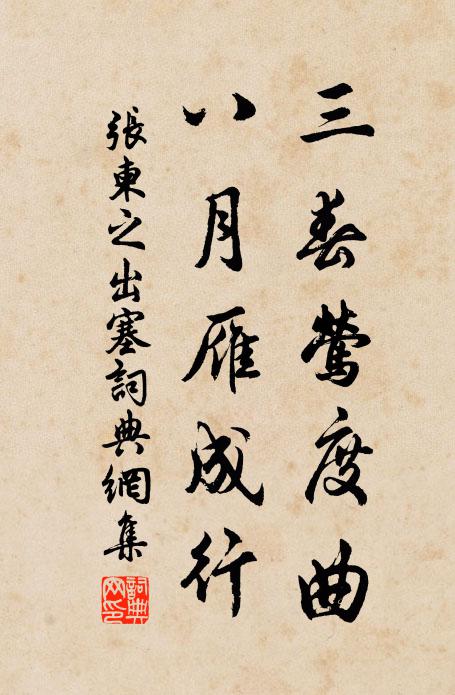 三春鶯度曲
八月雁成行
張東之出塞詞典網集
詞典網印